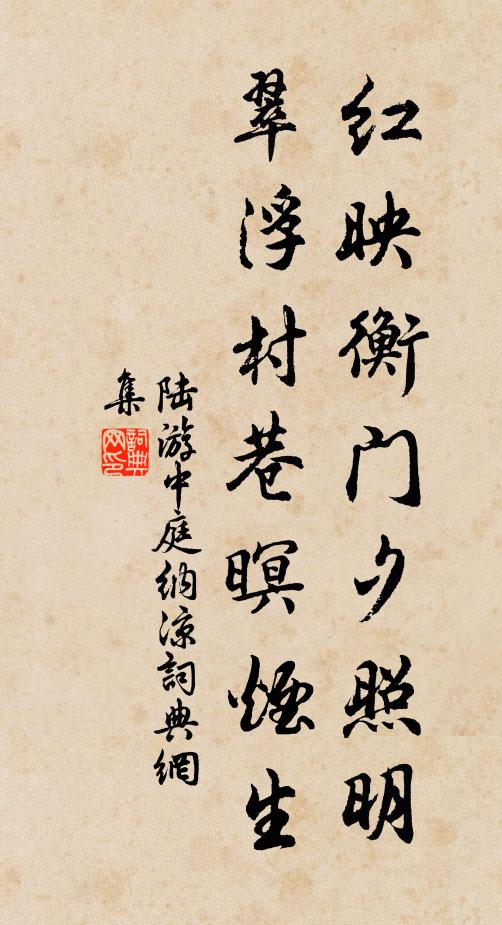 红映衡门夕照明
翠浮村巷暝烟生
陆游中庭纳凉詞典網
集
詞典网印